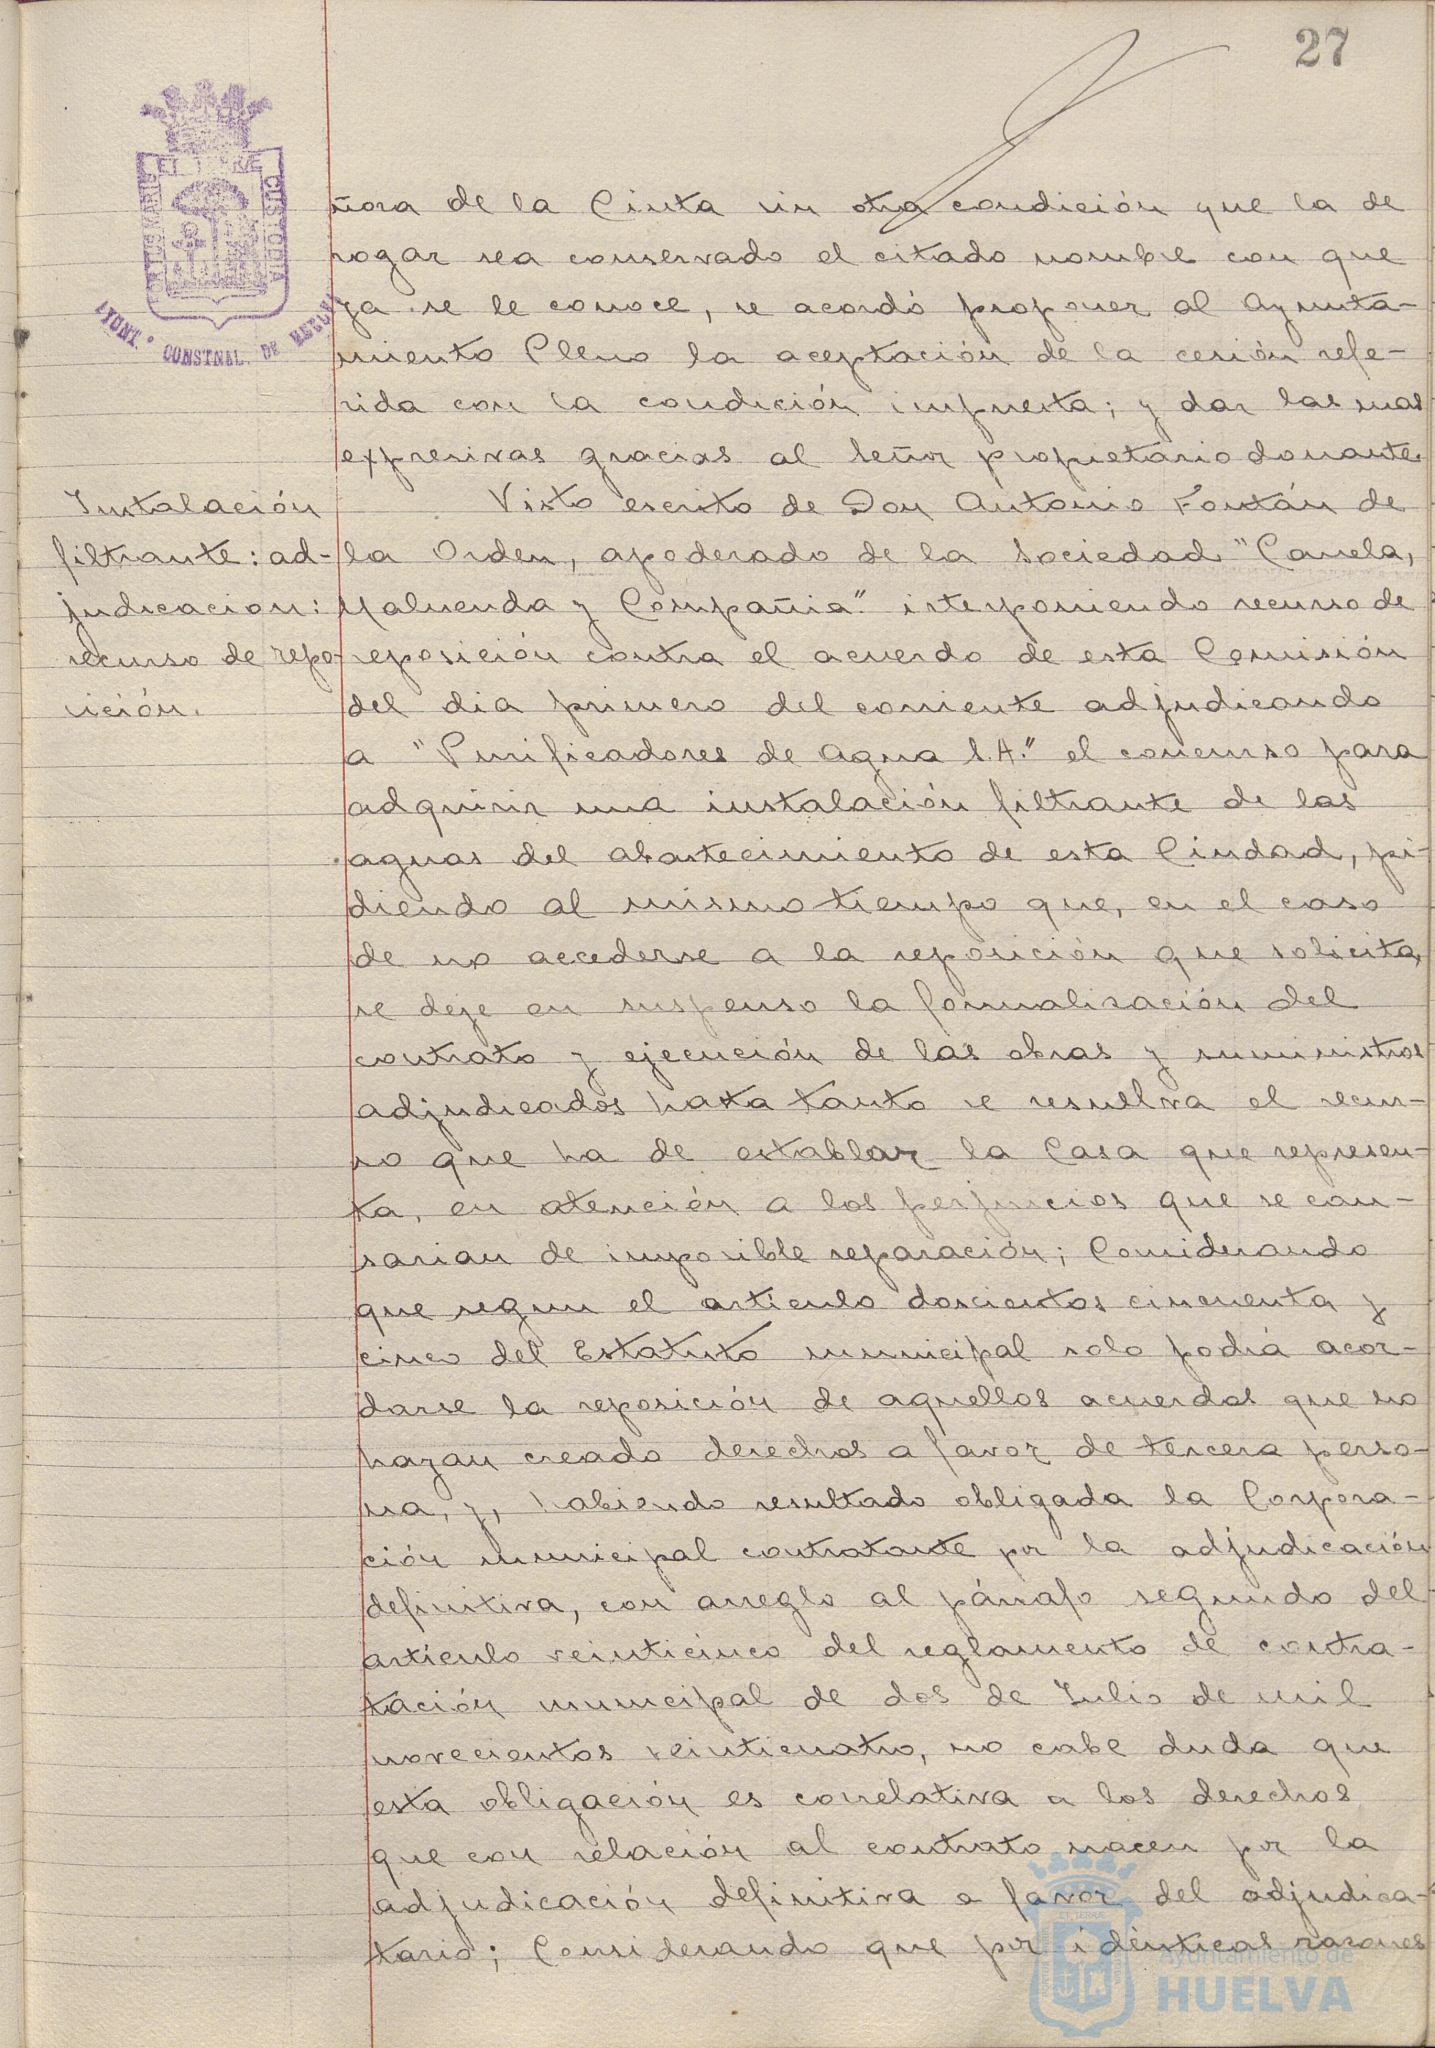 27
ñora de la Cinta sin otra condición que la de
rogar sea conservado el citado nombre con que
ya se le conoce, se acordó proponer al Ayunta-
miento Pleno la aceptación de la cesión refe-
rida con la condición impuesta; y dar las mas
expresivas gracias al Señor propietario donante.
Instalación
filtrante: ad-
judicacion:
recurso de repo-
sición.
Visto escrito de Don Antonio Fontán de
la Orden, apoderado de la Sociedad "Canela,
Maluenda y Compañia" interponiendo recurso de
reposición contra el acuerdo de esta Comisión
del dia primero del corriente adjudicando
a "Purificadores de Agua S.A." el concurso para
adquirir una instalación filtrante de las
aguas del abastecimiento de esta Ciudad, pi-
diendo al mismo tiempo que, en el caso
de no accederse a la reposición que solicita,
se deje en suspenso la formalización del
contrato y ejecución de las obras y suministros
adjudicados hasta tanto se resuelva el recur-
so que ha de establar la Casa que represen-
ta, en atención a los perjuicios que se cau-
sarian de imposible reparación; Considerando
que segun el artículo doscientos cincuenta y
cinco del Estatuto municipal solo podrá acor-
darse la reposición de aquellos acuerdos que no
hayan creado derechos a favor de tercera perso-
na, y, habiendo resultado obligada la Corpora-
ción municipal contratante por la adjudicación
definitiva, con arreglo al párrafo segundo del
artículo veinticinco del reglamento de contra-
tación municipal de dos de Julio de mil
novecientos veinticuatro, no cabe duda que
esta obligación es correlativa a los derechos
que con relación al contrato nacen por la
adjudicación definitiva a favor del adjudica-
tario; Considerando que por idénticas razones
AYUNT.º CONSTNAL. DE HUELVA
Ayuntamiento de
HUELVA